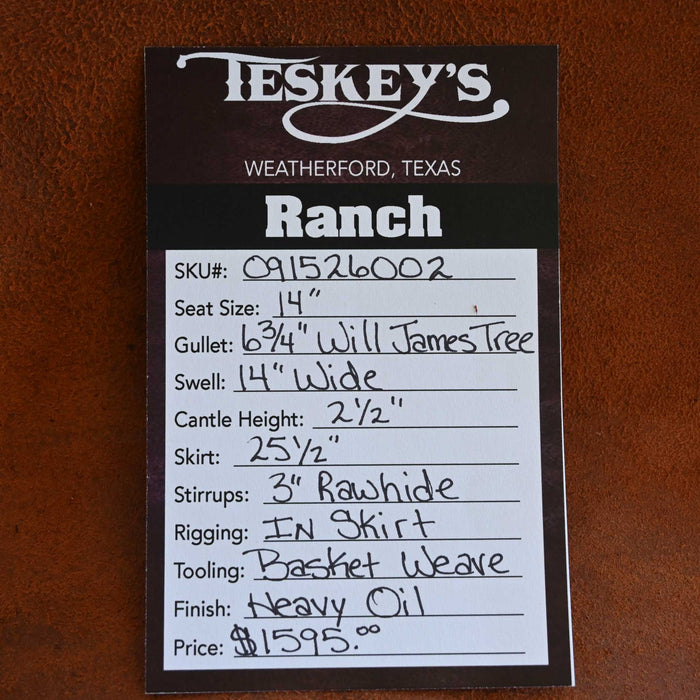 TESKEY'S
WEATHERFORD, TEXAS
Ranch
SKU#: 091526002
Seat Size: 14"
Gullet: 6 3/4" Will James Tree
Swell: 14" Wide
Cantle Height: 2 1/2"
Skirt: 25 1/2"
Stirrups: 3" Rawhide
Rigging: IN Skirt
Tooling: Basket Weave
Finish: Heavy Oil
Price: $1595.00